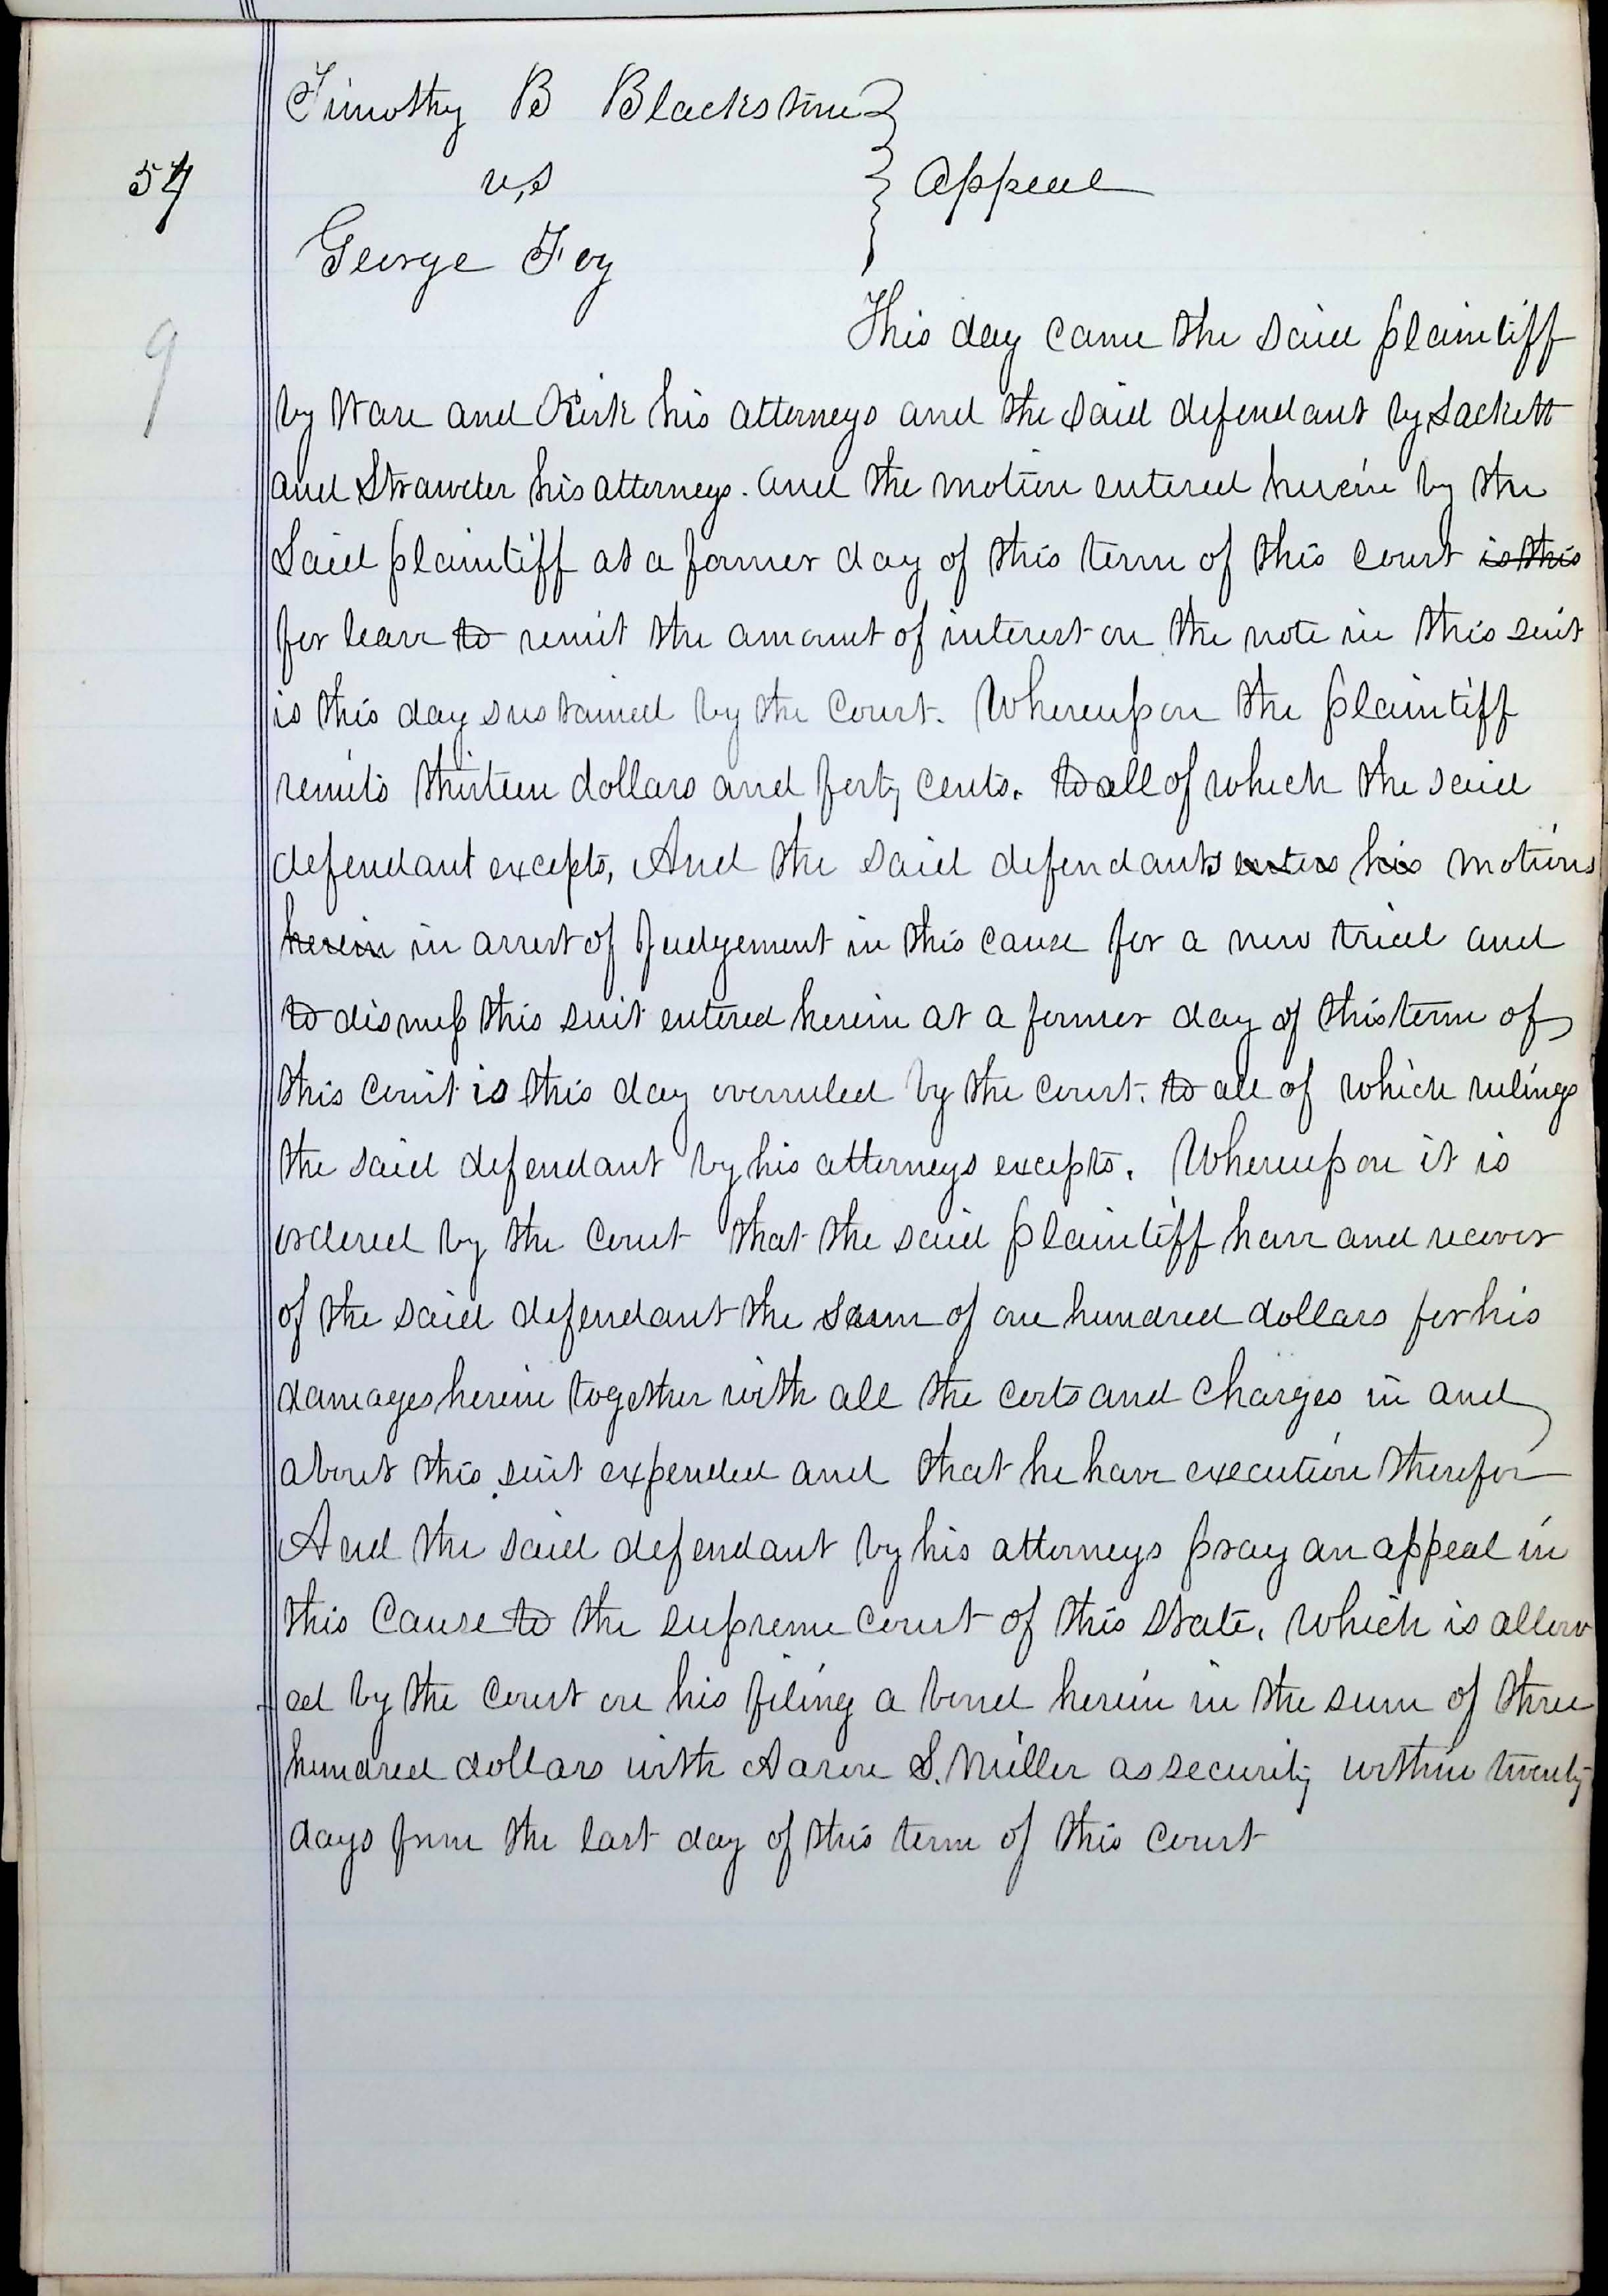 Timothy B Blackstone
54 vs } Appeal
George Foy
9
This day came the said plaintiff
by Ware and Kirk his attorneys and the said defendant by Sackett
and Strawder his attorneys. and the motion entered herein by the
said plaintiff at a former day of this term of this court is this
for leave to remit the amount of interest on the note in this suit
is this day sustained by the court. Whereupon the plaintiff
remits thirteen dollars and forty cents. to all of which the said
defendant excepts, And the said defendants enters his motions
herein in arrest of Judgement in this cause for a new trial and
to dismiss this suit entered herein at a former day of this term of
this court is this day overruled by the court. to all of which rulings
the said defendant by his attorneys excepts. Whereupon it is
ordered by the Court that the said plaintiff have and recover
of the said defendant the sum of one hundred dollars for his
damages herein together with all the costs and charges in and
about this suit expended and that he have execution therefor
And the said defendant by his attorneys pray an appeal in
this Cause to the supreme court of this state, which is allow
ed by the Court on his filing a bond herein in the sum of three
hundred dollars with Aaron S. Miller as security within twenty
days from the last day of this term of this court